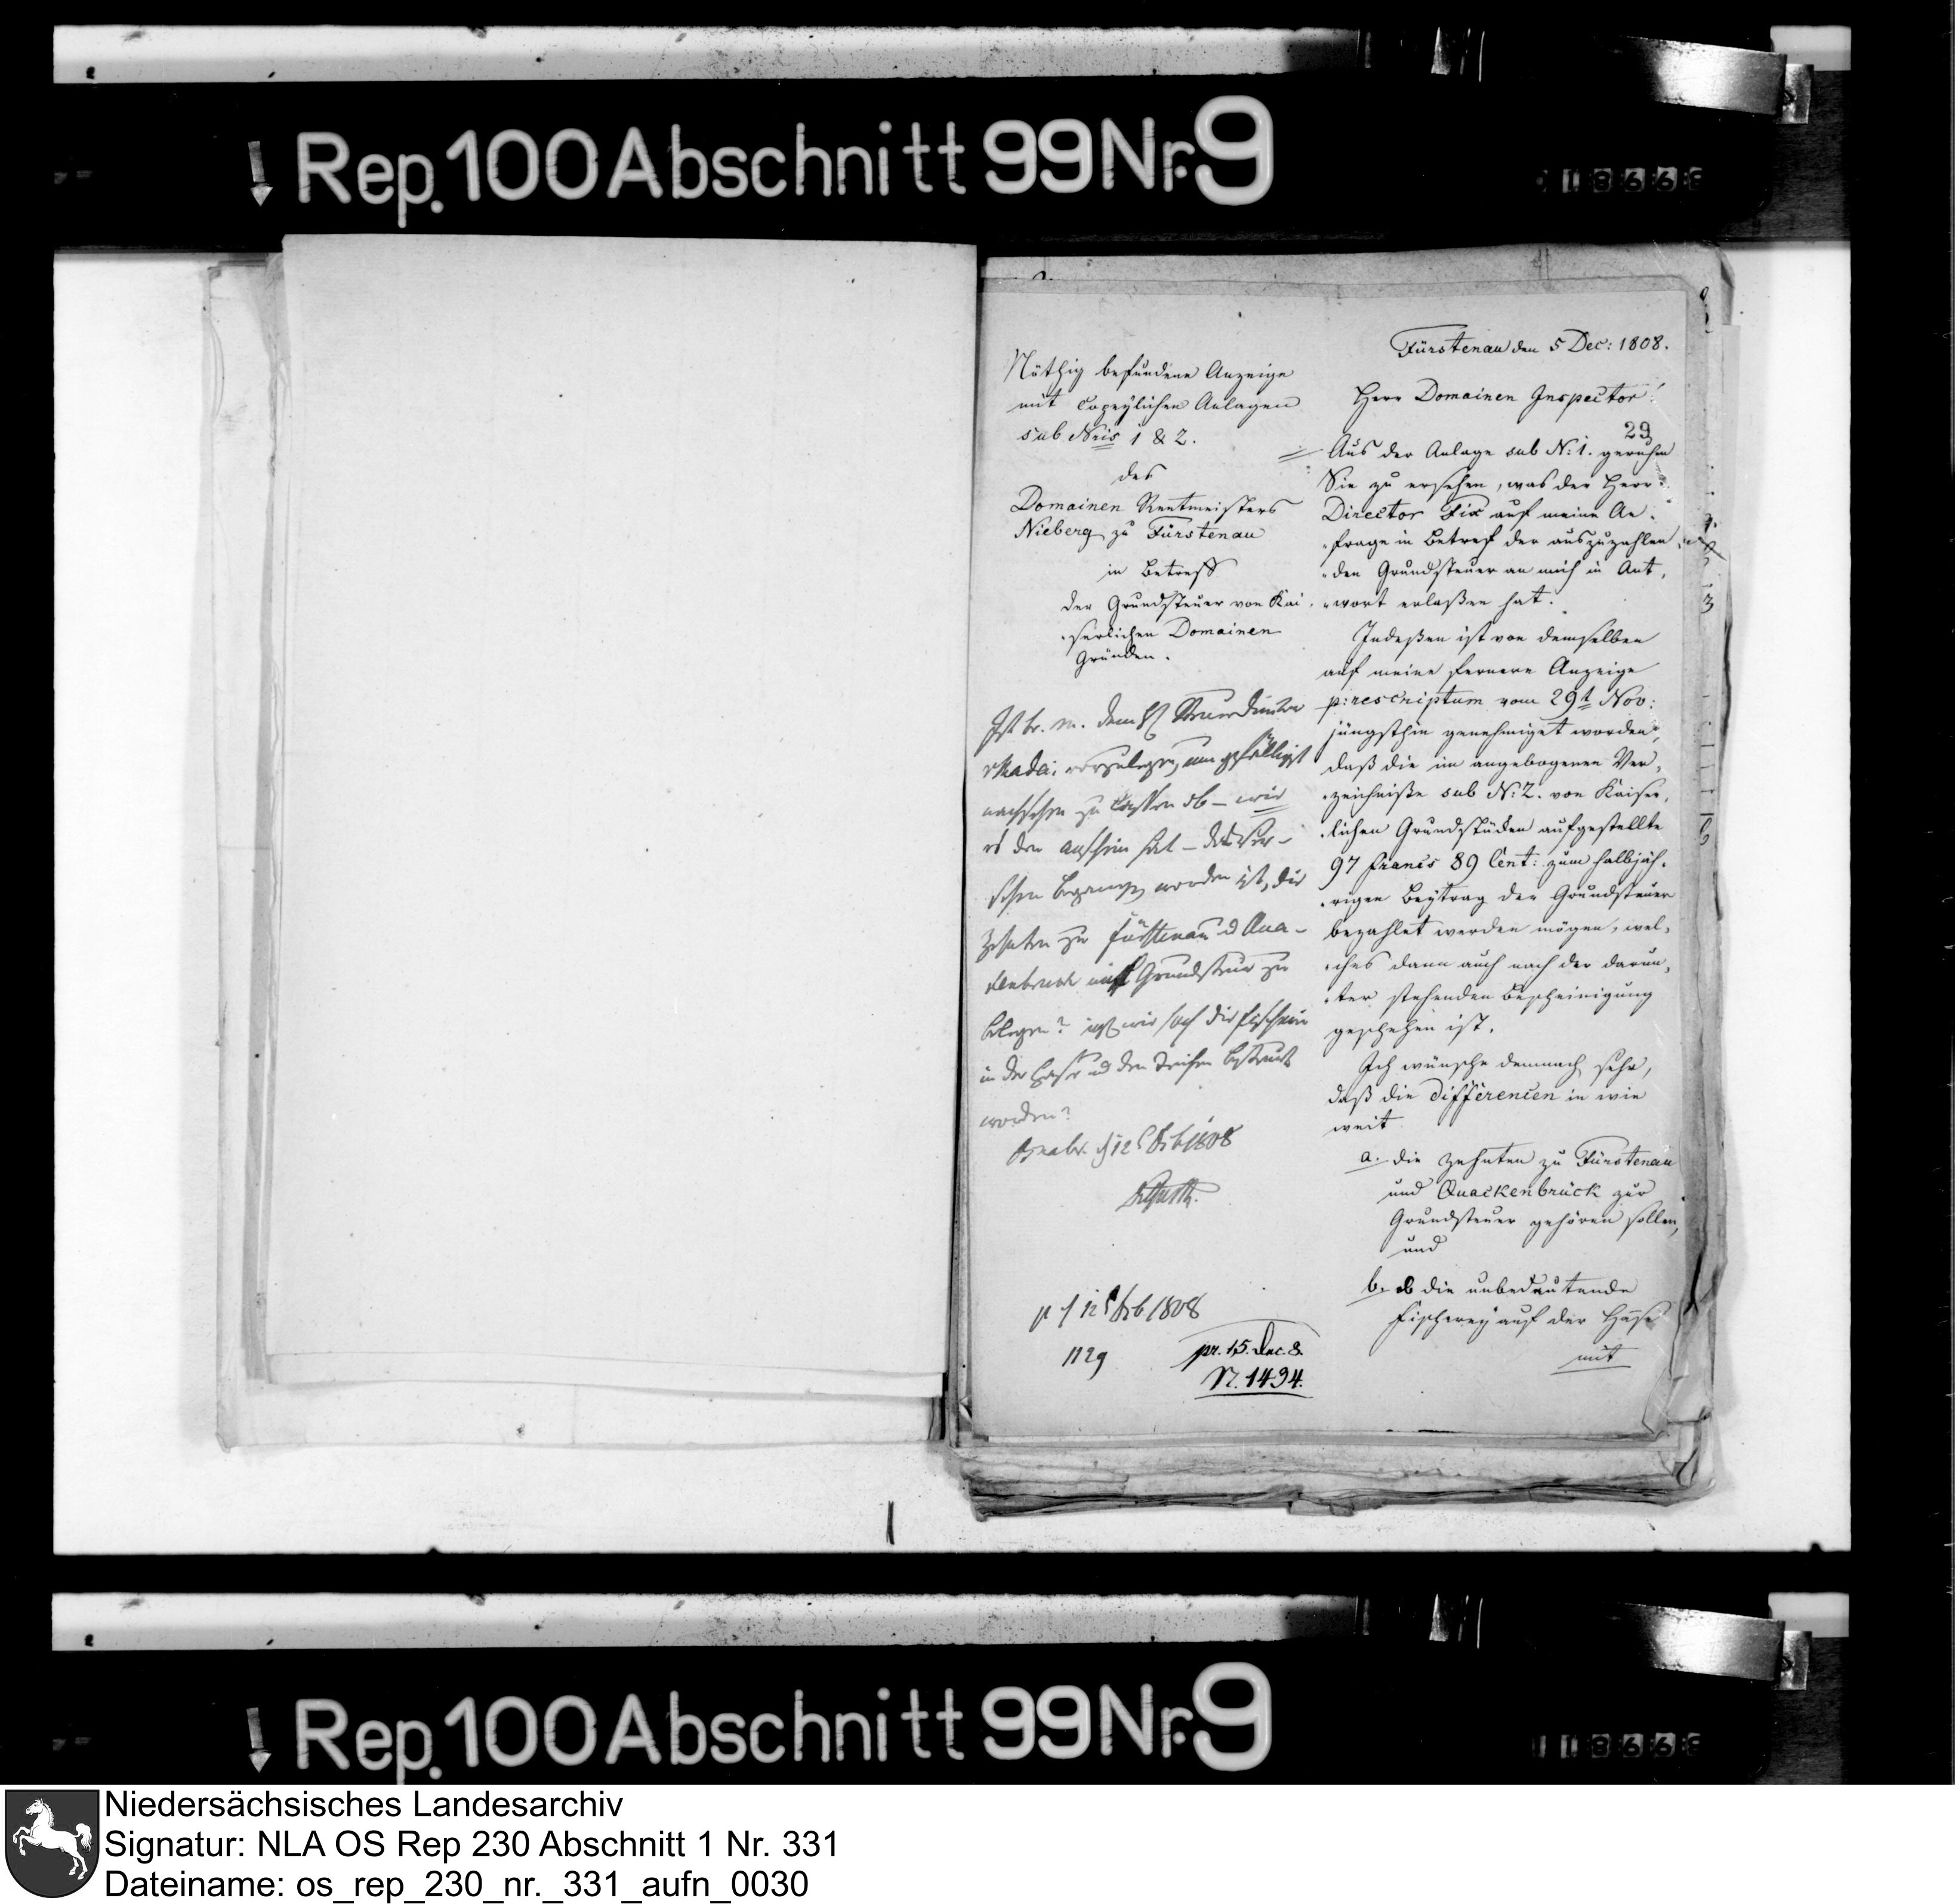 Rep. 100 Abschnitt 99 Nr. 9
Fürstenau den 5 Dec: 1808.
Herr Domainen Inspector!
29
Nöthig befundene Anzeige
mit Copeylichen Anlagen
sub Nris 1 & 2.
des
Domainen Rentmeisters
Nieberg zu Fürstenau
in Betreff
der Grundsteuer von Kai
serlichen Domainen
Gründen.
vorzulegen, um gefälligst
nachsehen zu lassen ob – wie
es den Anschein hat –
worden ist, die
Zehnten zu Fürstenau
Grundsteuer zu
belegen?
in der Hase
worden?
Osnabr. d 12 Xb 1808
p d 12 Xb 1808
1129
pr. 15. Dec. 8.
N. 1494.
Aus der Anlage sub N: 1. geruhen
Sie zu ersehen, was der Herr
Director Fix auf meine An-
frage in Betref der auszuzahlen
den Grundsteuer an mich in Ant,
wort erlaßen hat.
Indeßen ist von demselben
auf meine fernere Anzeige
p: rescriptum vom 29t Nov:
jüngsthin genehmiget worden,
daß die im angebogenen Ver,
zeichniße sub N: 2. von Kaiser,
lichen Grundstücken aufgestellte
97 francs 89 Cent: zum halbjäh,
rigen Beytrag der Grundsteuer
bezahlet werden mögen, wel,
ches dann auch nach der darun,
ter stehenden Bescheinigung
geschehen ist.
Ich wünsche demnach sehr,
daß die differencen in wie
weit
a. die Zehnten zu Fürstenau
und Quackenbrück zur
Grundsteuer gehören sollen,
und
b. ob die unbedeutende
Fischerey auf der Hase
mit
Rep. 100 Abschnitt 99 Nr. 9
Niedersächsisches Landesarchiv
Signatur: NLA OS Rep 230 Abschnitt 1 Nr. 331
Dateiname: os_rep_230_nr._331_aufn_0030